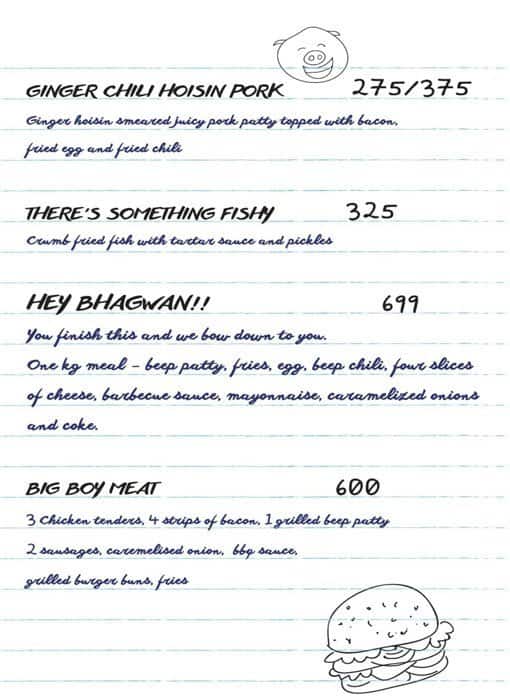 GINGER CHILI HOISIN PORK 275/375
Ginger hoisin smeared juicy pork patty topped with bacon,
fried egg and fried chili
THERE'S SOMETHING FISHY 325
Crumb fried fish with tartar sauce and pickles
HEY BHAGWAN!! 699
You finish this and we bow down to you.
One kg meal - beep patty, fries, egg, beep chili, four slices
of cheese, barbecue sauce, mayonnaise, caramelized onions
and coke.
BIG BOY MEAT 600
3 Chicken tenders, 4 strips of bacon, 1 grilled beep patty
2 sausages, caremelised onion, bbq sauce,
grilled burger buns, fries